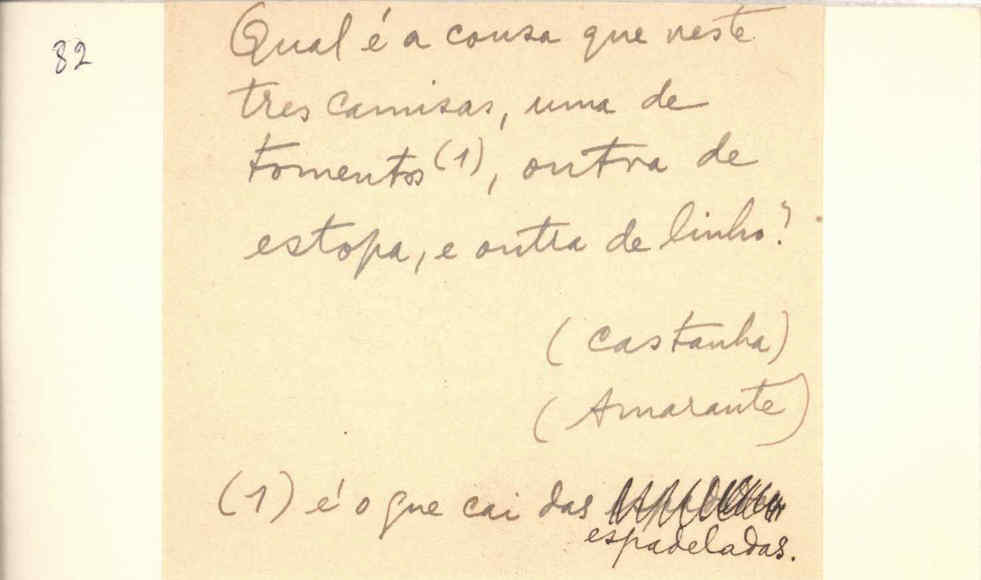 82
Qual é a cousa que veste
tres camisas, uma de
tomentos (1), outra de
estopa, e outra de linho?
(Castanha)
(Amarante)
(1) é o que cai das
espadeladas.